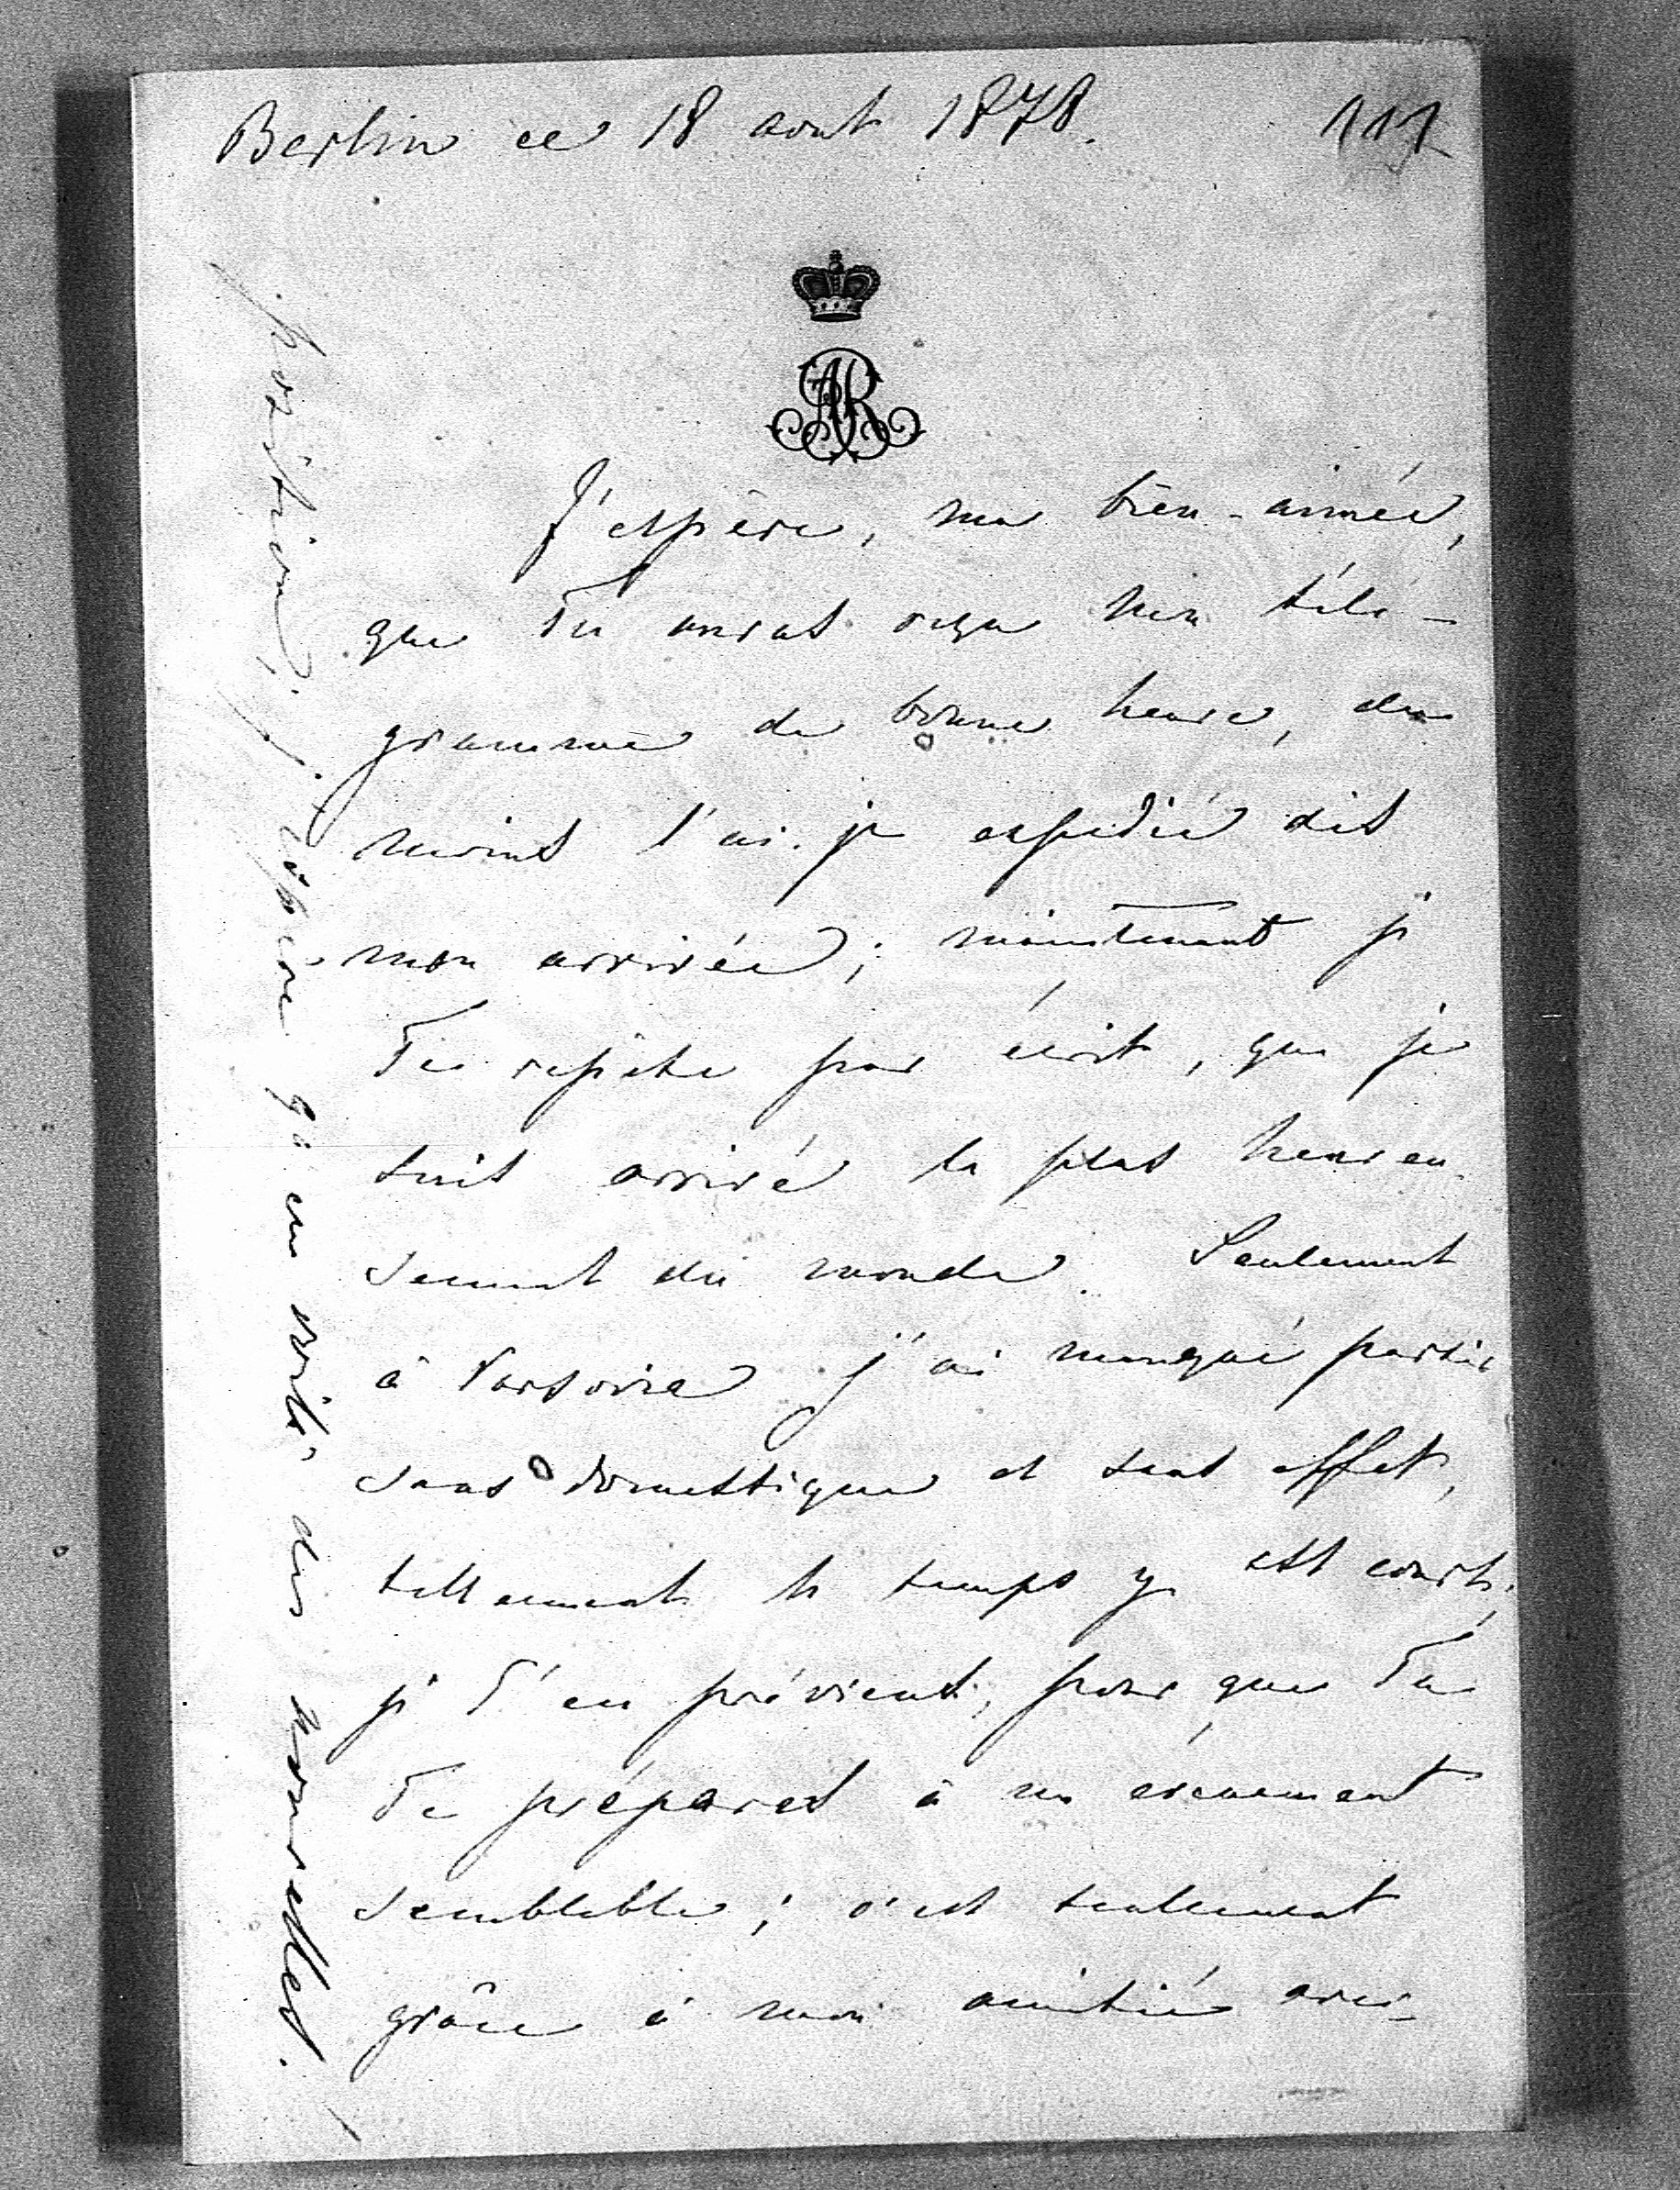 Berlin ce 18 aout 1878.
117
AR
J'espère, ma bien-aimée,
que Tu auras reçu mon télé-
gramme de bonne heure, du
moins l'ai-je expédié dès
mon arrivée; maintenant je
Te repète par écrit, que je
suis arrivé le plus heureu-
sement du monde. Seulement
à Varsovie j'ai manqué partir
sans domestique et sans effets,
tellement le temps y est court;
je T'en préviens, pour que Tu
Te prépares à un évènement
semblable; c'est seulement
grâce à mon amitié avec
position; j'espère qu'en voilà des nouvelles!